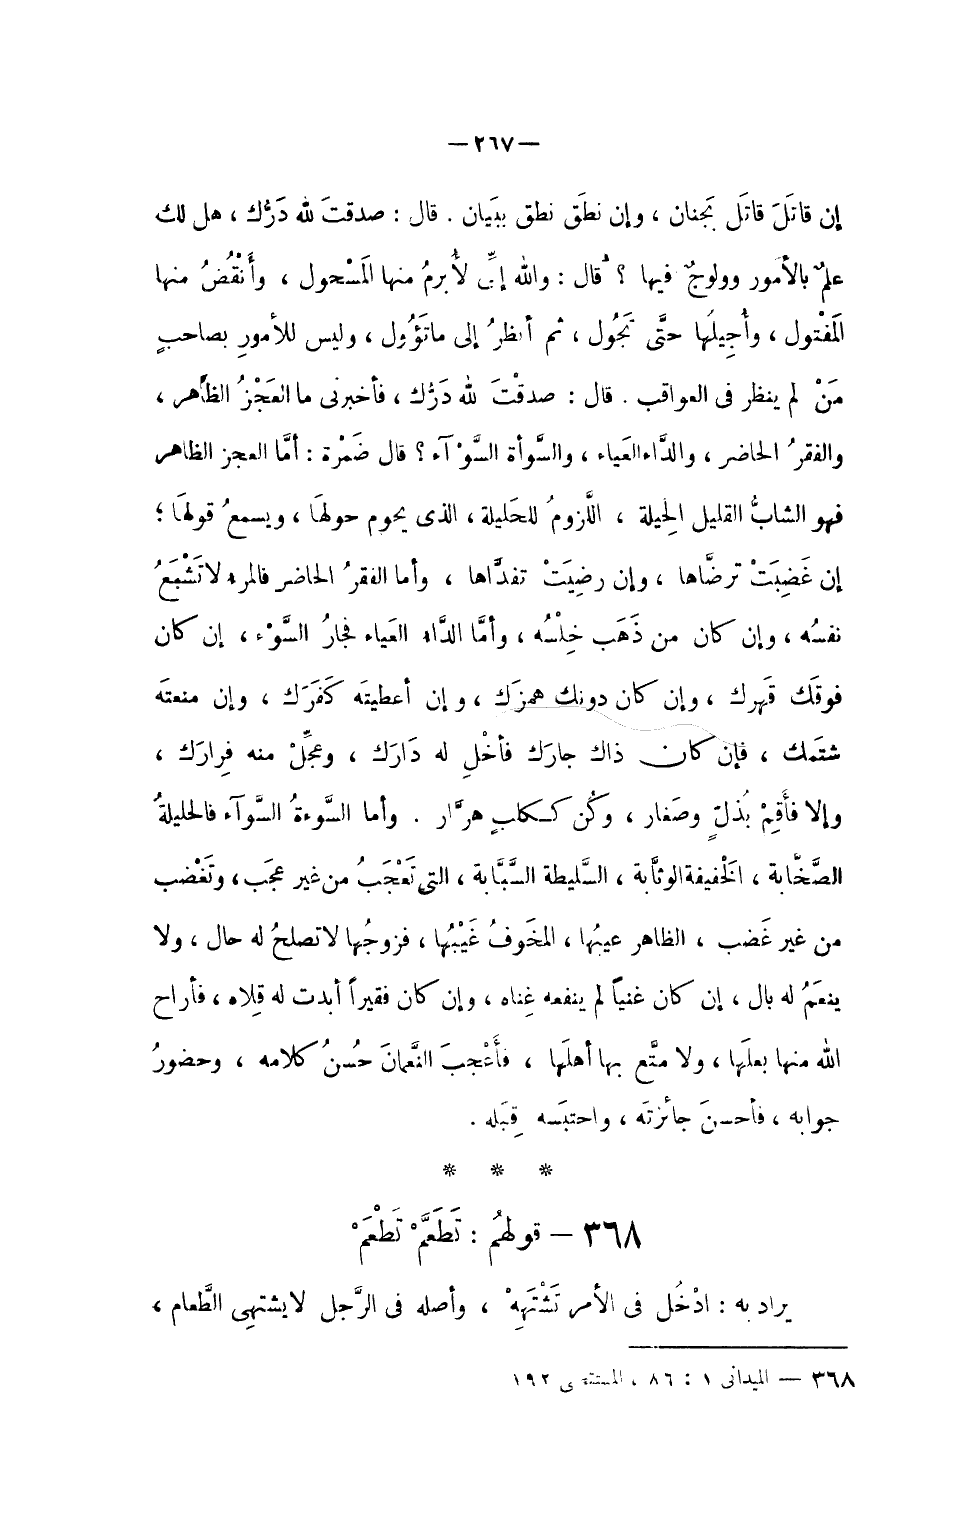 —٢٦٧—
إن قاتَلَ قاتَل بجَنان ، وإن نطَق نطق ببَيان . قال : صدقتَ لله دَرُّك ، هل لك
علمٌ بالأمور وولوجٌ فيها ؟ قال : والله إنِّى لأُبرمُ منها المَسْحول ، وأَنْقُضُ منها
المَفْتول ، وأُجِيلُها حتَّى تَجُول ، ثم أنظرُ إلى ماتَؤُول ، وليس للأمورِ بصاحبٍ
مَنْ لم ينظر فى العواقب . قال : صدقْتَ لله دَرُّك ، فأخبرنى ما العَجْزُ الظَّاهر ،
والفقرُ الحاضر ، والدَّاءالعَياء ، والسَّوأة السَّوْآء ؟ قال ضَمْرة : أمَّا العجز الظاهر
فهو الشابُّ القليل الحِيلة ، اللَّزومُ للحَليلة ، الذى يحوم حولهَا ، ويسمعُ قولهَا ؛
إن غَضِبَتْ ترضَّاها ، وإن رضِيَتْ تفدَّاها ، وأما الفقرُ الحاضر فالمرء لاتَشْبَعُ
نفسُه ، وإن كان من ذَهَب خِلْسُه ، وأمَّا الدَّاء العَياء فجارُ السَّوْء ، إن كان
فوقَك قَهرك ، وإن كان دونك همزَك ، وإن أعطيتَه كَفَرَك ، وإن منعتَه
شتَمك ، فإن كان ذاك جارَك فأخْلِ له دَارَك ، وعجِّلْ منه فِرارَك ،
وإلا فأَقِمْ بذُلٍّ وصَغار ، وكُن ككلبٍ هرَّار . وأما السَّوءةُ السَّوآء فالحليلةُ
الصَّخَّابة ، الخَفيفةالوثَّابة ، السَّليطة السَّبَّابة ، التي تَعْجَبُ من غير عجَب، وتَغْضب
من غير غَضب ، الظاهر عيبُها ، المخَوفُ غَيْبُها ، فزوجُها لاتصلحُ له حال ، ولا
ينعَمُ له بال ، إن كان غنياً لم ينفعه غِناه ، وإن كان فقيراً أبدت له قِلاه ، فأراح
الله منها بعلَها ، ولا متَّع بها أهلَها ، فأَعْجبَ النُّعمانَ حُسنُ كلامه ، وحضورُ
جوابه ، فأحسنَ جائزتَه ، واحتبَسه قِبَله .
* * *
٣٦٨ — قولهُم : تَطَعَّمْ تَطْعَمْ
يراد به : ادْخُل فى الأمر تَشْتَهِهْ ، وأصله فى الرَّجل لايشتهِى الطَّعام ،
٣٦٨ — الميدانى ١ : ٨٦ ، المستقصى ١٩٢